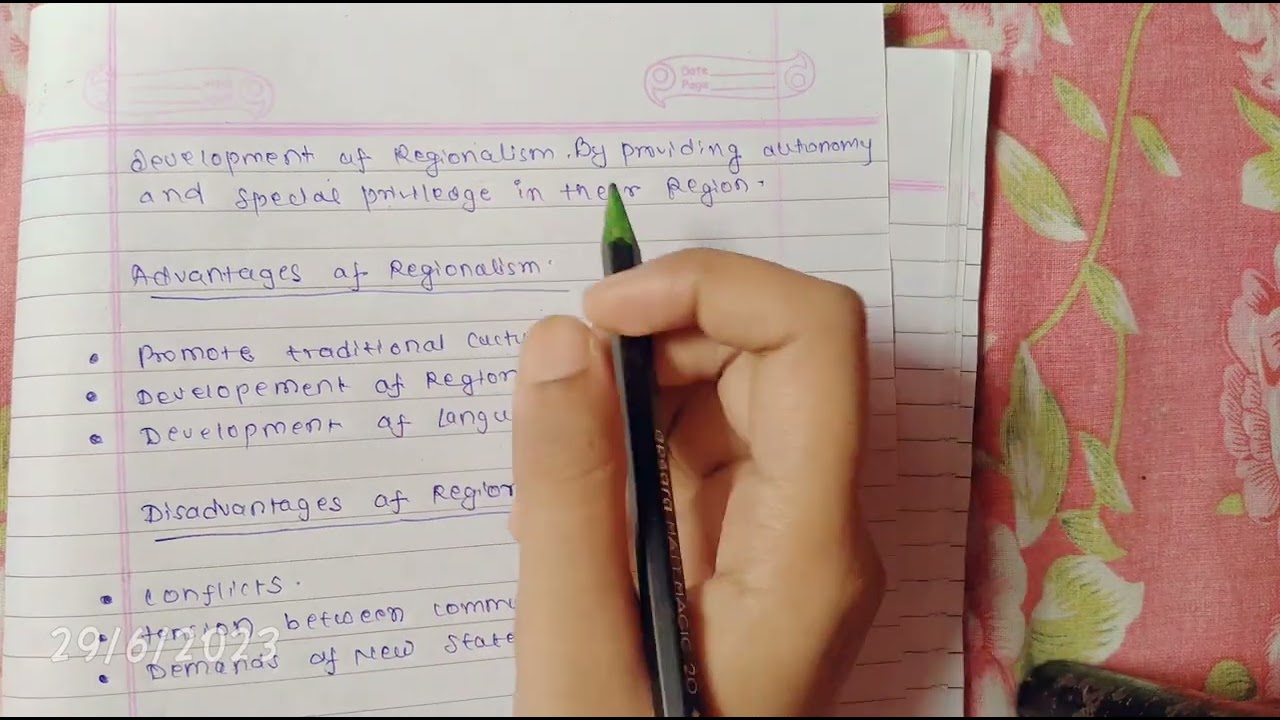 Date
Page
Development of Regionalism. By providing autonomy
and special priviledge in their Region.
Advantages of Regionalism.
• Promote traditional
• Developement of Region
• Development of
Disadvantages of
• Conflicts.
• tension between
• Demands of New State
29/6/2023
apsara MATT MAGIC 20